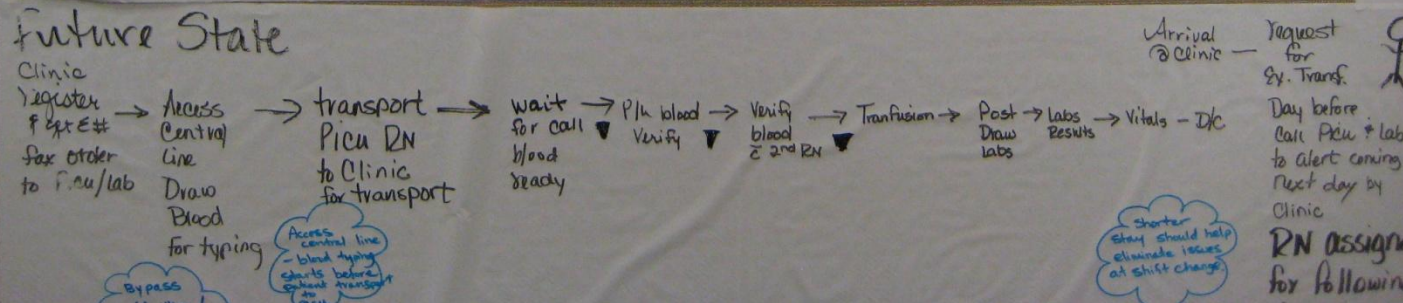 Future State
Clinic
register
fax order
to Picu/lab
Access
Central
Line
Draw
Blood
for typing
transport
Picu RN
to Clinic
for transport
wait
for call
blood
ready
P/u blood
Verify
Verify
blood
c̄ 2nd RN
Tranfusion
Post
Draw
Labs
Labs
Results
Vitals - D/C
Arrival
@ Clinic —
request
for
Ex. Transf.
Day before
Call Picu & Lab
to alert coming
next day by
Clinic
RN assign
for followin
Bypass
Access
central line
- blood typing
starts before
patient transport
to
Shorter
stay should help
eliminate issues
at shift change.